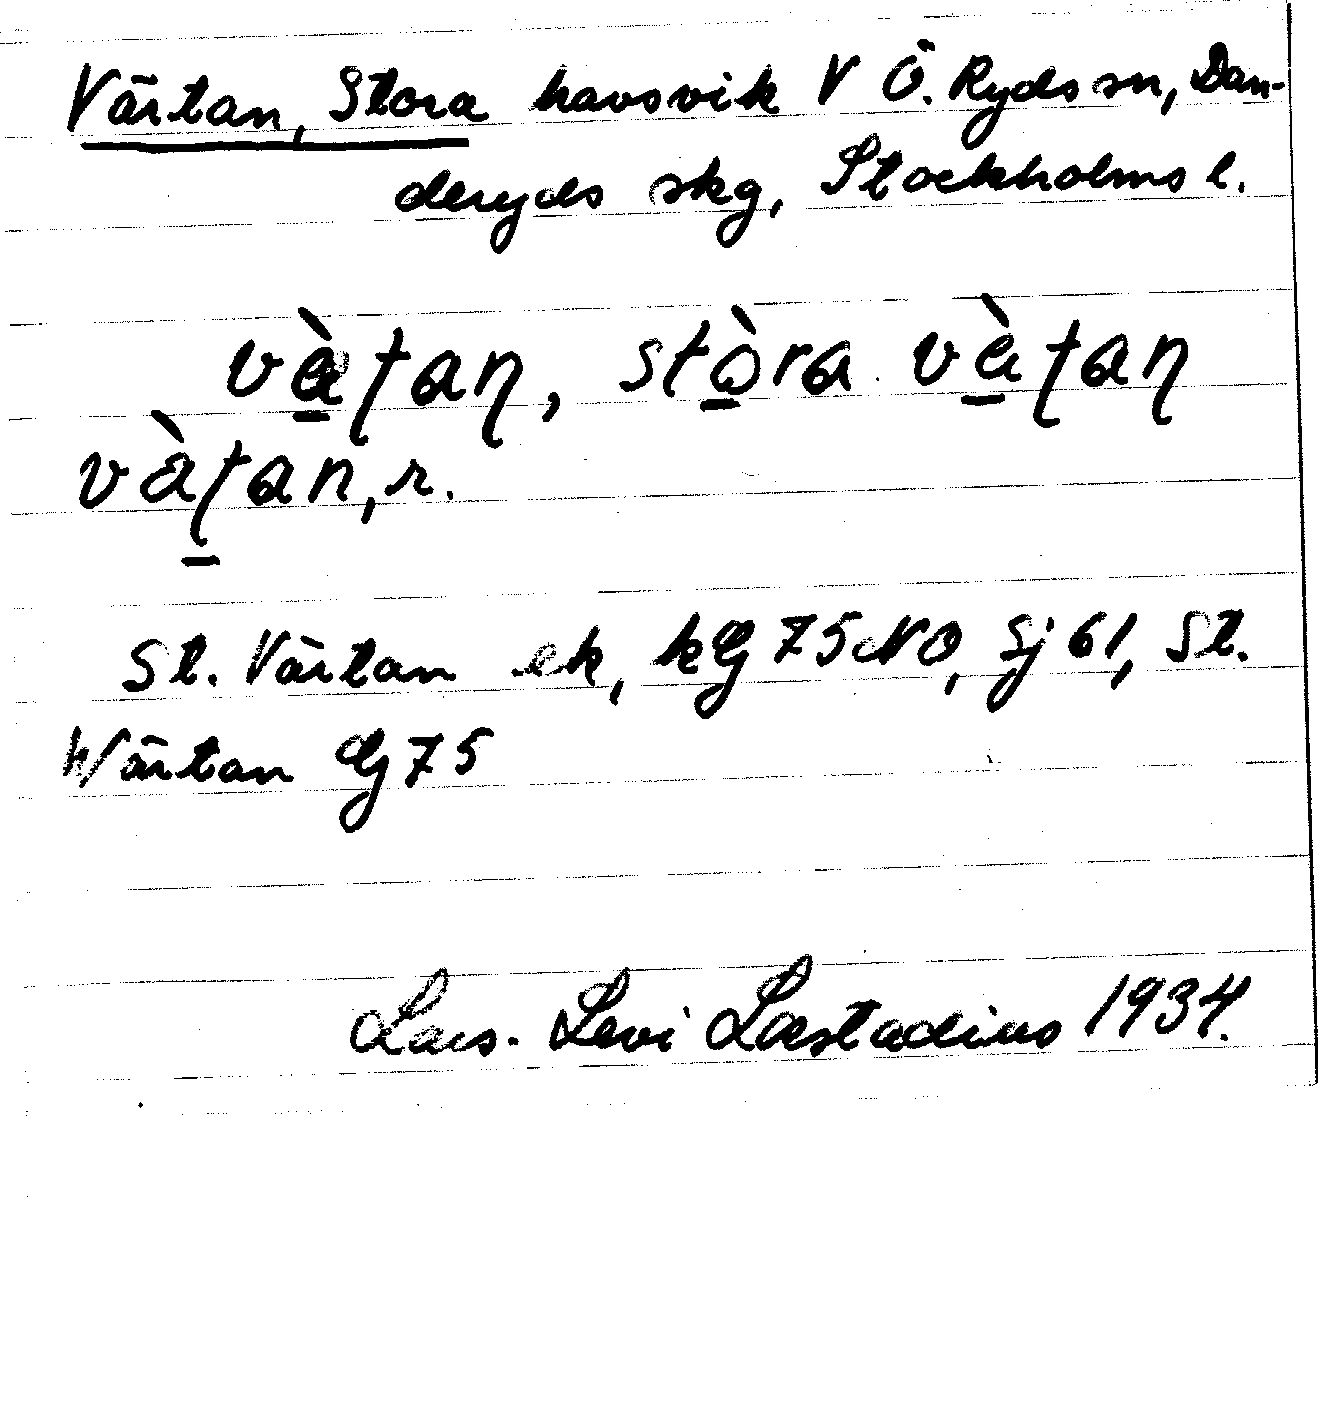 Värtan, Stora havsvik V Ö. Ryds sn, Dan-
deryds skg, Stockholms l.
vè̱ʈaɳ, stò̱ra vè̱ʈaɳ
vàʈ̱an, r.
St. Värtan ek, kG 75 NO, Sj 61, St.
Wärtan G 75
Lars. Levi Læstadius 1934.